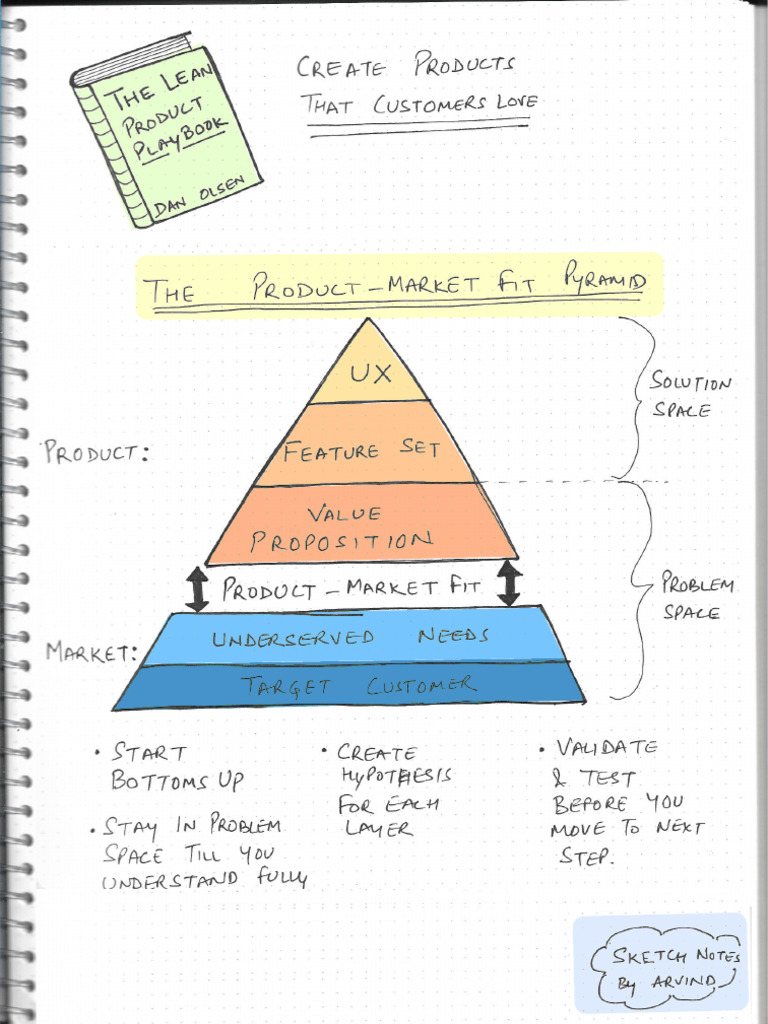 THE LEAN
PRODUCT
PLAYBOOK
DAN OLSEN
CREATE PRODUCTS
THAT CUSTOMERS LOVE
THE PRODUCT-MARKET FIT PYRAMID
UX
SOLUTION
SPACE
PRODUCT:
FEATURE SET
VALUE
PROPOSITION
PRODUCT-MARKET FIT
PROBLEM
SPACE
MARKET:
UNDERSERVED NEEDS
TARGET CUSTOMER
• START
BOTTOMS UP
• STAY IN PROBLEM
SPACE TILL YOU
UNDERSTAND FULLY
• CREATE
HYPOTHESIS
FOR EACH
LAYER
• VALIDATE
& TEST
BEFORE YOU
MOVE TO NEXT
STEP.
SKETCH NOTES
BY ARVIND